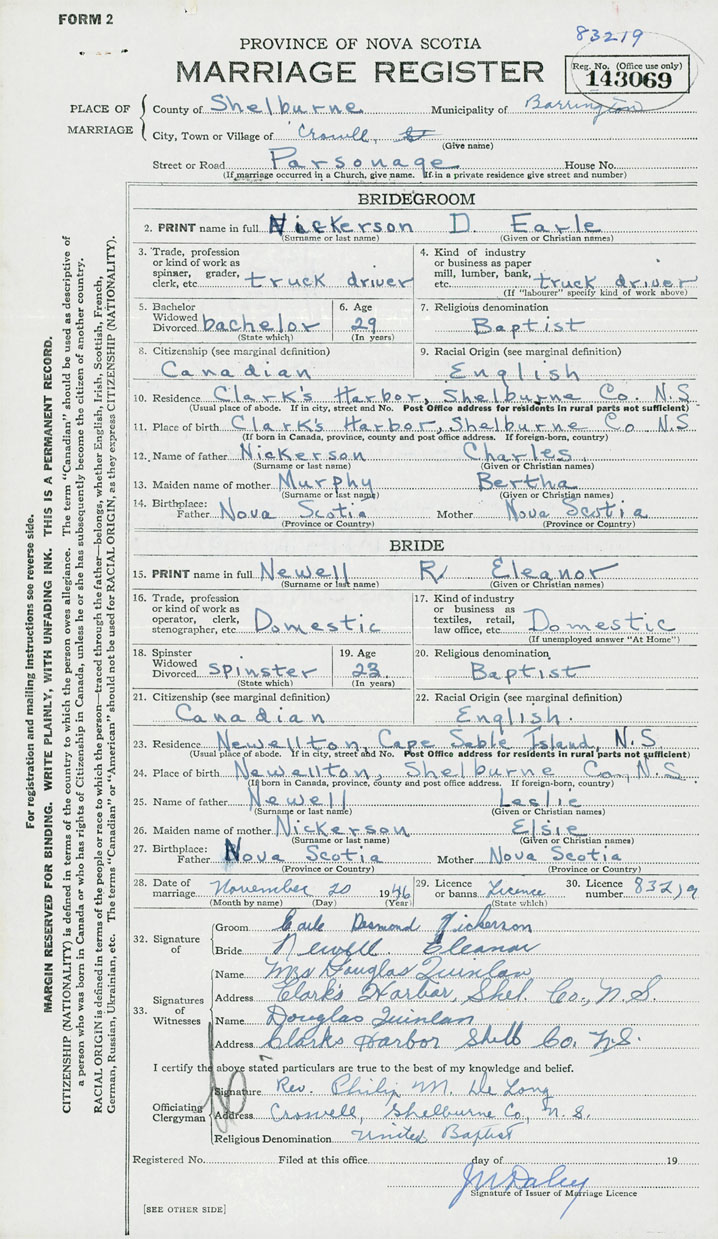 FORM 2
83219
PROVINCE OF NOVA SCOTIA
MARRIAGE REGISTER
Reg. No. (Office use only)
143069
PLACE OF MARRIAGE
County of Shelburne Municipality of Barrington
City, Town or Village of Crowell,
(Give name)
Street or Road Parsonage House No.
(If marriage occurred in a Church, give name. If in a private residence give street and number)
BRIDEGROOM
2. PRINT name in full Nickerson D. Earle
(Surname or last name) (Given or Christian names)
3. Trade, profession or kind of work as spinner, grader, clerk, etc. truck driver
4. Kind of industry or business as paper mill, lumber, bank, etc. truck driver
(If "labourer" specify kind of work above)
5. Bachelor Widowed Divorced bachelor
(State which)
6. Age 29
(In years)
7. Religious denomination
Baptist
8. Citizenship (see marginal definition)
Canadian
9. Racial Origin (see marginal definition)
English
10. Residence Clark's Harbor, Shelburne Co. N.S
(Usual place of abode. If in city, street and No. Post Office address for residents in rural parts not sufficient)
11. Place of birth Clark's Harbor, Shelburne Co. N.S
(If born in Canada, province, county and post office address. If foreign-born, country)
12. Name of father Nickerson Charles
(Surname or last name) (Given or Christian names)
13. Maiden name of mother Murphy Bertha
(Surname or last name) (Given or Christian names)
14. Birthplace: Father Nova Scotia Mother Nova Scotia
(Province or Country) (Province or Country)
BRIDE
15. PRINT name in full Newell R. Eleanor
(Surname or last name) (Given or Christian names)
16. Trade, profession or kind of work as operator, clerk, stenographer, etc. Domestic
17. Kind of industry or business as textiles, retail, law office, etc. Domestic
(If unemployed answer "At Home")
18. Spinster Widowed Divorced spinster
(State which)
19. Age 23
(In years)
20. Religious denomination
Baptist
21. Citizenship (see marginal definition)
Canadian
22. Racial Origin (see marginal definition)
English.
23. Residence Newellton, Cape Sable Island, N.S.
(Usual place of abode. If in city, street and No. Post Office address for residents in rural parts not sufficient)
24. Place of birth Newellton, Shelburne Co., N.S
(If born in Canada, province, county and post office address. If foreign-born, country)
25. Name of father Newell Leslie
(Surname or last name) (Given or Christian names)
26. Maiden name of mother Nickerson Elsie
(Surname or last name) (Given or Christian names)
27. Birthplace: Father Nova Scotia Mother Nova Scotia
(Province or Country) (Province or Country)
28. Date of marriage November 20 1946
(Month by name) (Day) (Year)
29. Licence or banns Licence
(State which)
30. Licence number 83219
32. Signature of
Groom Earle Desmond Nickerson
Bride Newell Eleanor
33. Signatures of Witnesses
Name Mrs Douglas Quinlan
Address Clark's Harbor, Shel. Co., N.S.
Name Douglas Quinlan
Address Clarks Harbor Shelb Co. N.S.
I certify the above stated particulars are true to the best of my knowledge and belief.
Officiating Clergyman
Signature Rev. Philip M. De Long
Address Crowell, Shelburne Co., N.S.
Religious Denomination United Baptist
Registered No. Filed at this office day of 19
Signature of Issuer of Marriage Licence
[SEE OTHER SIDE]
For registration and mailing instructions see reverse side.
MARGIN RESERVED FOR BINDING. WRITE PLAINLY, WITH UNFADING INK. THIS IS A PERMANENT RECORD.
CITIZENSHIP (NATIONALITY) is defined in terms of the country to which the person owes allegiance. The term "Canadian" should be used as descriptive of
a person who was born in Canada or who has rights of Citizenship in Canada, unless he or she has subsequently become the citizen of another country.
RACIAL ORIGIN is defined in terms of the people or race to which the person—traced through the father—belongs, whether English, Irish, Scottish, French,
German, Russian, Ukrainian, etc. The terms "Canadian" or "American" should not be used for RACIAL ORIGIN, as they express CITIZENSHIP (NATIONALITY).